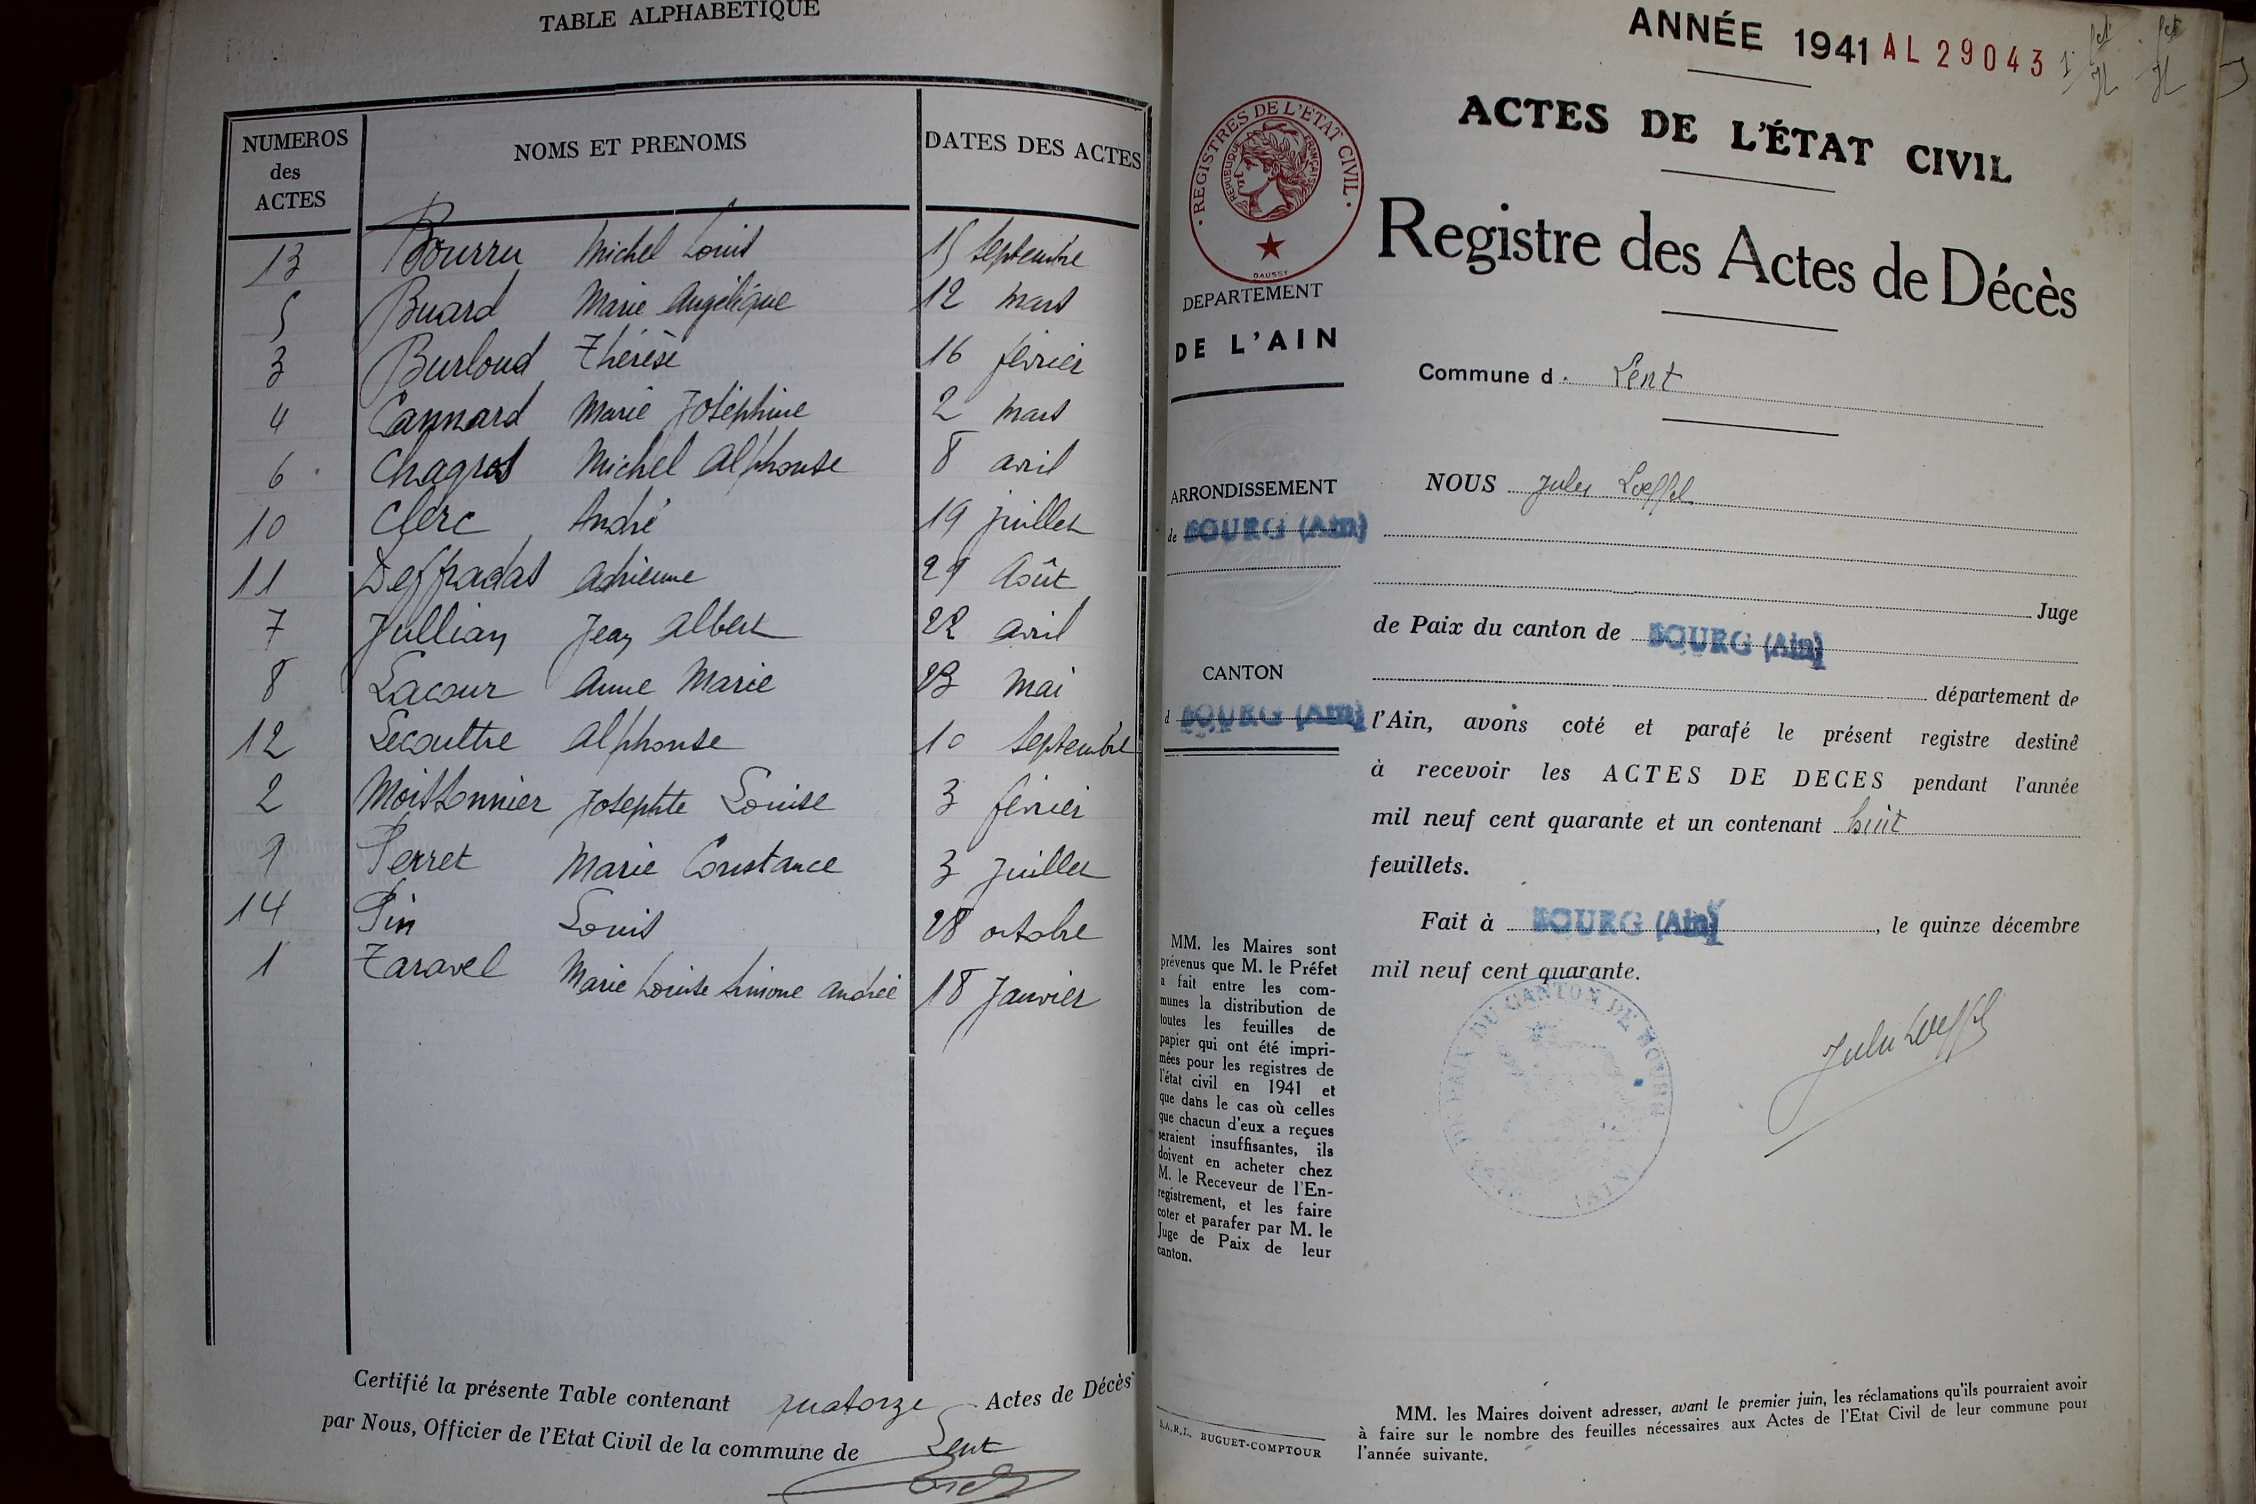 TABLE ALPHABETIQUE
NUMEROS des ACTES NOMS ET PRENOMS DATES DES ACTES
13 Bourru Michel Louis 15 Septembre
5 Buard Marie Angélique 12 mars
3 Burloud Thérèse 16 février
4 Cannard Marie Joséphine 2 mars
6 Chagros Michel Alphonse 8 avril
10 Clerc André 19 juillet
11 Deffradas Adrienne 29 Août
7 Jullian Jean Albert 22 avril
8 Lacour Anne Marie 23 Mai
12 Lecoultre Alphonse 10 Septembre
2 Moissonnier Josephte Louise 3 février
9 Perret Marie Constance 3 Juillet
14 Pin Louis 28 octobre
1 Taravel Marie Louise Simone Andrée 18 Janvier
Certifié la présente Table contenant quatorze Actes de Décès
par Nous, Officier de l'Etat Civil de la commune de Lent
ANNÉE 1941 AL 29043
ACTES DE L'ÉTAT CIVIL
Registre des Actes de Décès
· REGISTRES DE L'ETAT CIVIL ·
REPUBLIQUE FRANÇAISE
DAUSSY
DEPARTEMENT
DE L'AIN
Commune d. Lent
ARRONDISSEMENT
de BOURG (Ain)
CANTON
d BOURG (Ain)
NOUS Jules Loeffel
Juge
de Paix du canton de BOURG (Ain)
département de
l'Ain, avons coté et parafé le présent registre destiné
à recevoir les ACTES DE DECES pendant l'année
mil neuf cent quarante et un contenant huit
feuillets.
Fait à BOURG (Ain), le quinze décembre
mil neuf cent quarante.
Jules Loeffel
MM. les Maires sont
prévenus que M. le Préfet
a fait entre les com-
munes la distribution de
toutes les feuilles de
papier qui ont été impri-
mées pour les registres de
l'état civil en 1941 et
que dans le cas où celles
que chacun d'eux a reçues
seraient insuffisantes, ils
doivent en acheter chez
M. le Receveur de l'En-
registrement, et les faire
coter et parafer par M. le
Juge de Paix de leur
canton.
S.A.R.L. BUGUET-COMPTOUR
MM. les Maires doivent adresser, avant le premier juin, les réclamations qu'ils pourraient avoir
à faire sur le nombre des feuilles nécessaires aux Actes de l'Etat Civil de leur commune pour
l'année suivante.